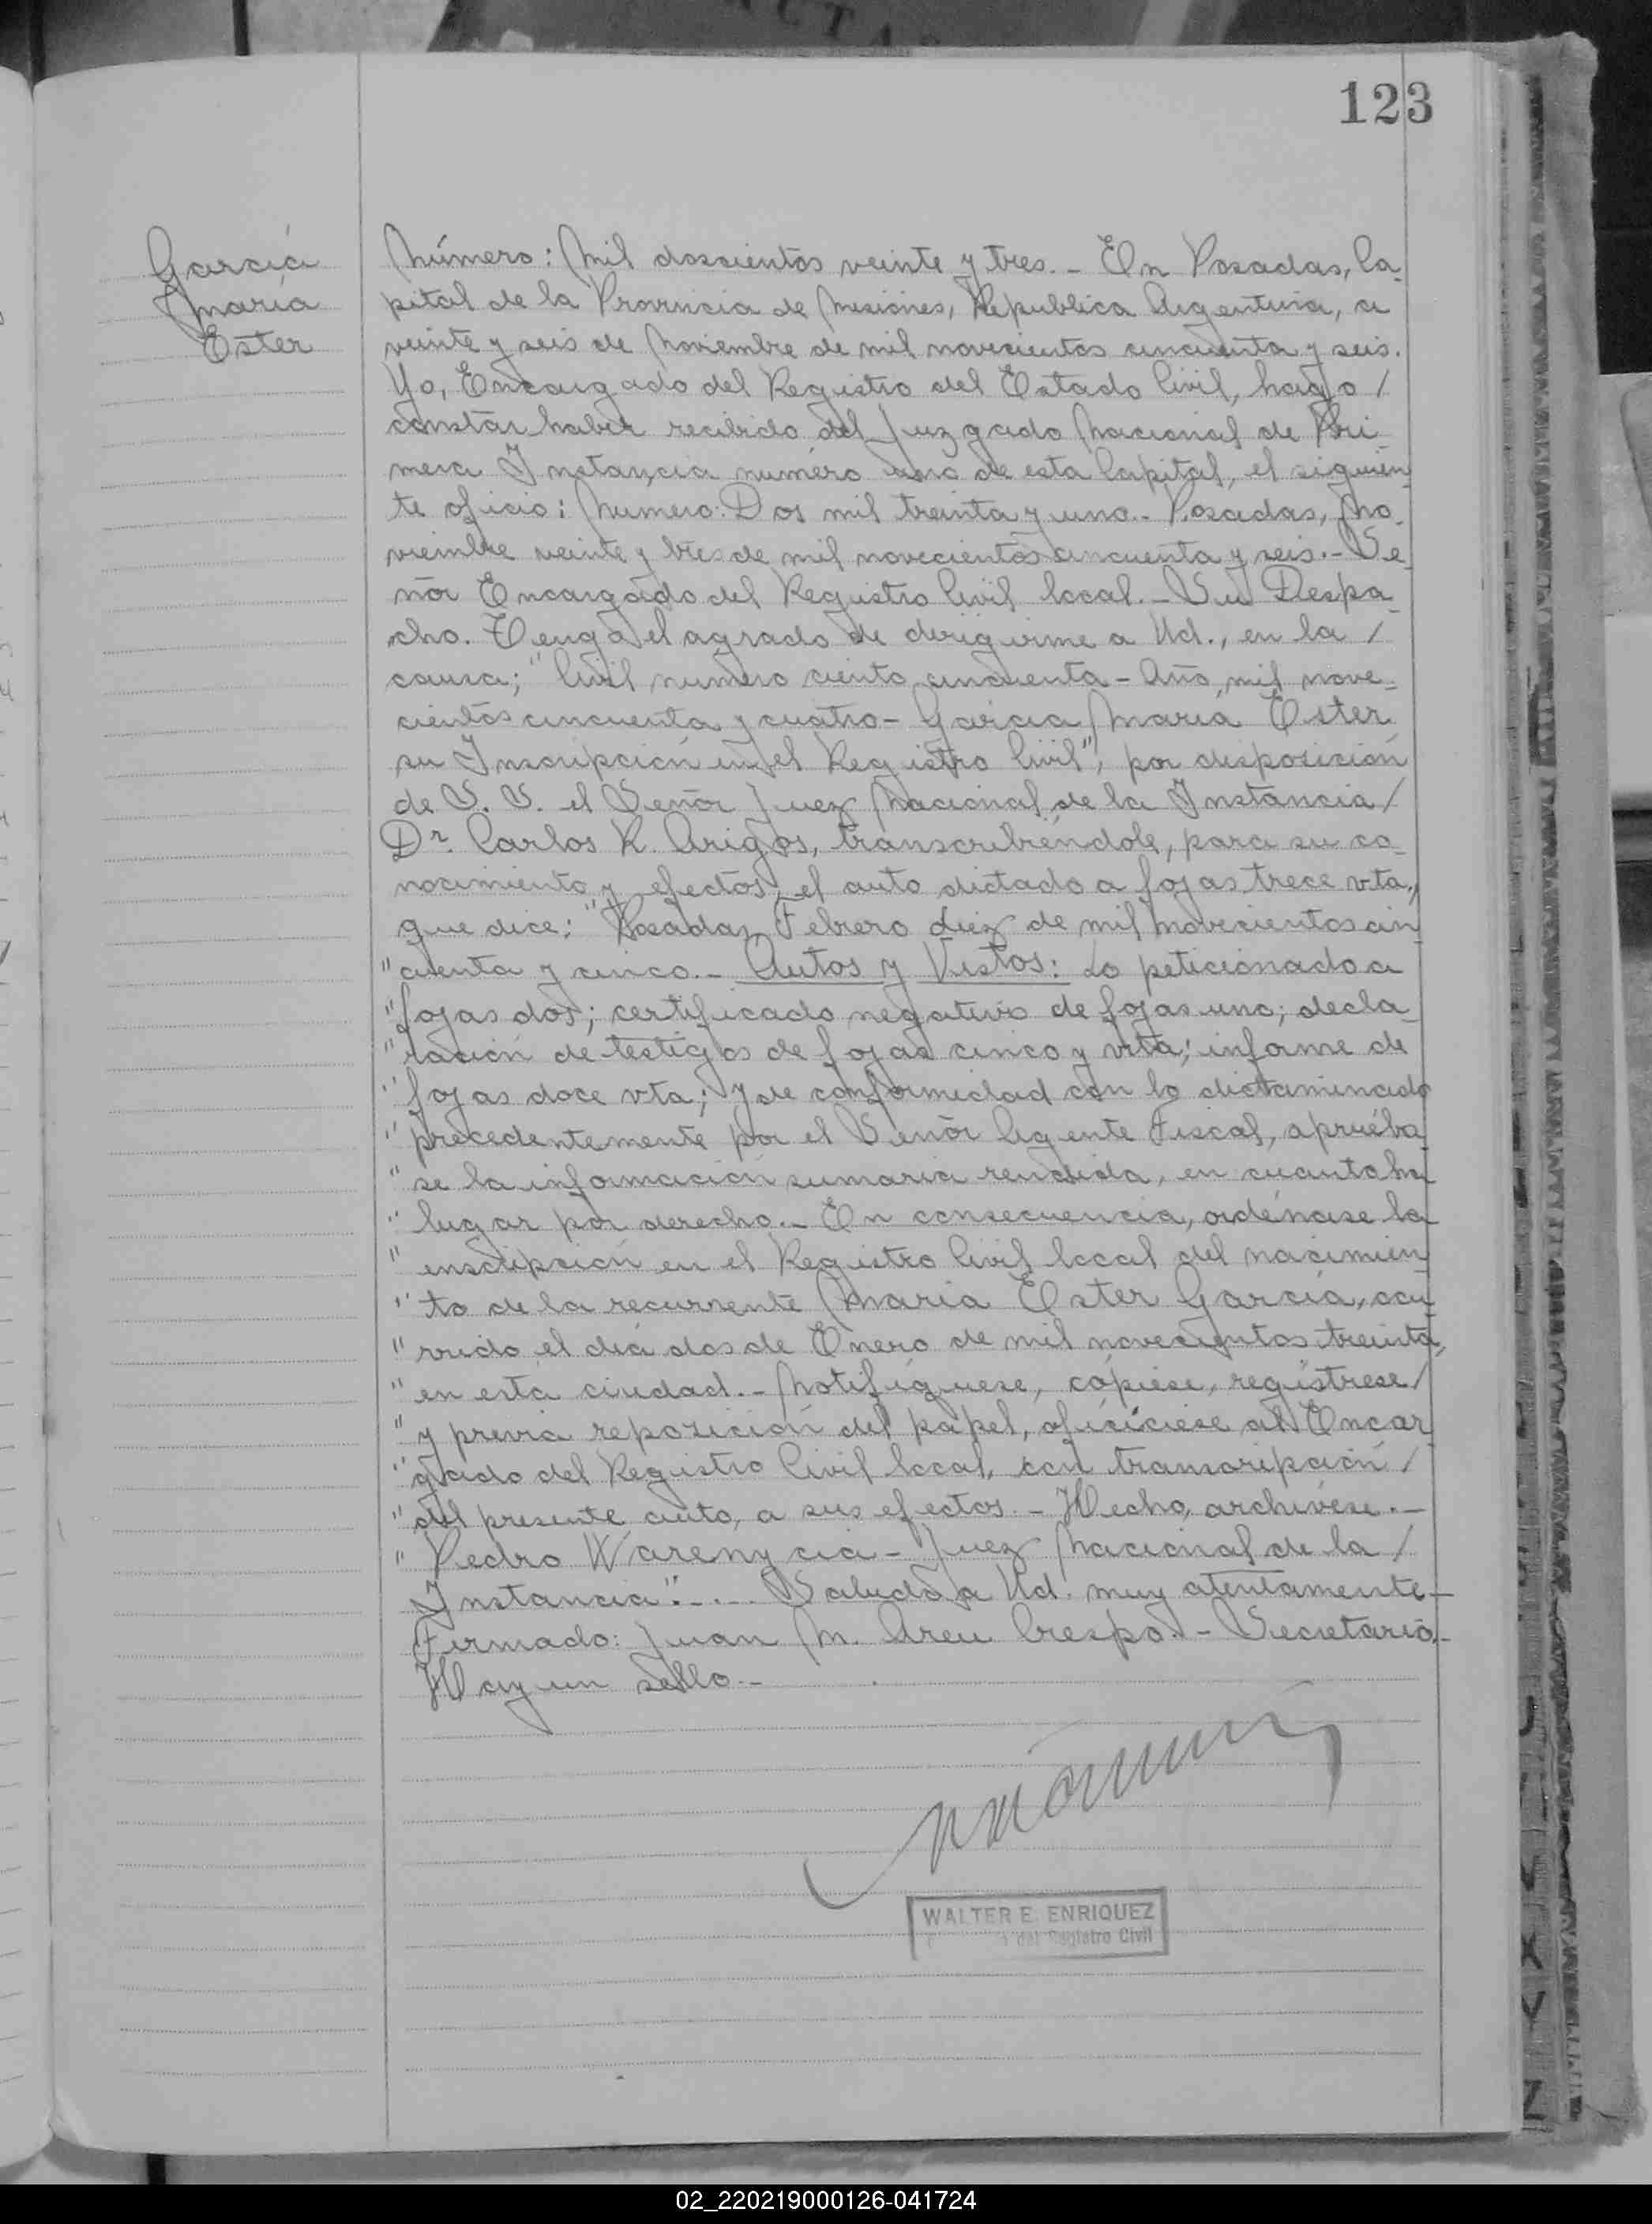 ACTAS
123
García
María
Ester
Número: Mil doscientos veinte y tres.- En Posadas, Ca-
pital de la Provincia de Misiones, República Argentina, a
veinte y seis de Noviembre de mil novecientos cincuenta y seis.
Yo, Encargado del Registro del Estado Civil, hago /
constar haber recibido del Juzgado Nacional de Pri-
mera Instancia número uno de esta Capital, el siguien-
te oficio: Número: Dos mil treinta y uno.- Posadas, No-
viembre veinte y tres de mil novecientos cincuenta y seis.- Se-
ñor Encargado del Registro Civil local.- Su Despa-
cho. Tengo el agrado de dirigirme a Ud., en la /
causa; "Civil número ciento cincuenta - Año mil nove-
cientos cincuenta y cuatro - García María Ester
su Inscripción en el Registro Civil", por disposición
de S. S. el Señor Juez Nacional de 1a Instancia /
Dr. Carlos R. Arigós, transcribiéndole, para su co-
nocimiento y efectos, el auto dictado a fojas trece vta.,
que dice: "Posadas, Febrero diez de mil novecientos cin-
"cuenta y cinco.- Autos y Vistos: Lo peticionado a
"fojas dos; certificado negativo de fojas uno; decla-
"ración de testigos de fojas cinco y vta; informe de
"fojas doce vta; y de conformidad con lo dictaminado
"precedentemente por el Señor Agente Fiscal, apruéba-
"se la información sumaria rendida, en cuanto ha
"lugar por derecho.- En consecuencia, ordénase la
"inscripción en el Registro Civil local del nacimien-
"to de la recurrente María Ester García, ocu-
"rrido el día dos de Enero de mil novecientos treinta,
"en esta ciudad.- Notifíquese, cópiese, regístrese /
"y previa reposición del papel, ofíciese al Encar-
"gado del Registro Civil local, con transcripción /
"del presente auto, a sus efectos.- Hecho, archívese.-
"Pedro Warenycia - Juez Nacional de 1a /
Instancia".-.-. Saludo a Ud. muy atentamente-
Firmado: Juan M. Areu Crespo.- Secretario.-
Hay un sello.-
WALTER E. ENRIQUEZ
del Registro Civil
02_220219000126-041724